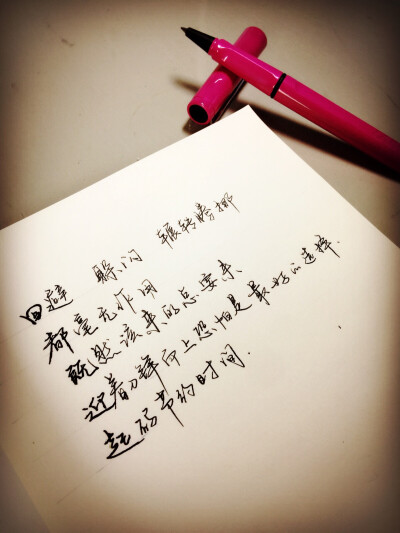 回避 躲闪 辗转腾挪
都毫无作用
既然该来的总要来
迎着刀锋而上恐怕是最好的选择.
起码节约时间.